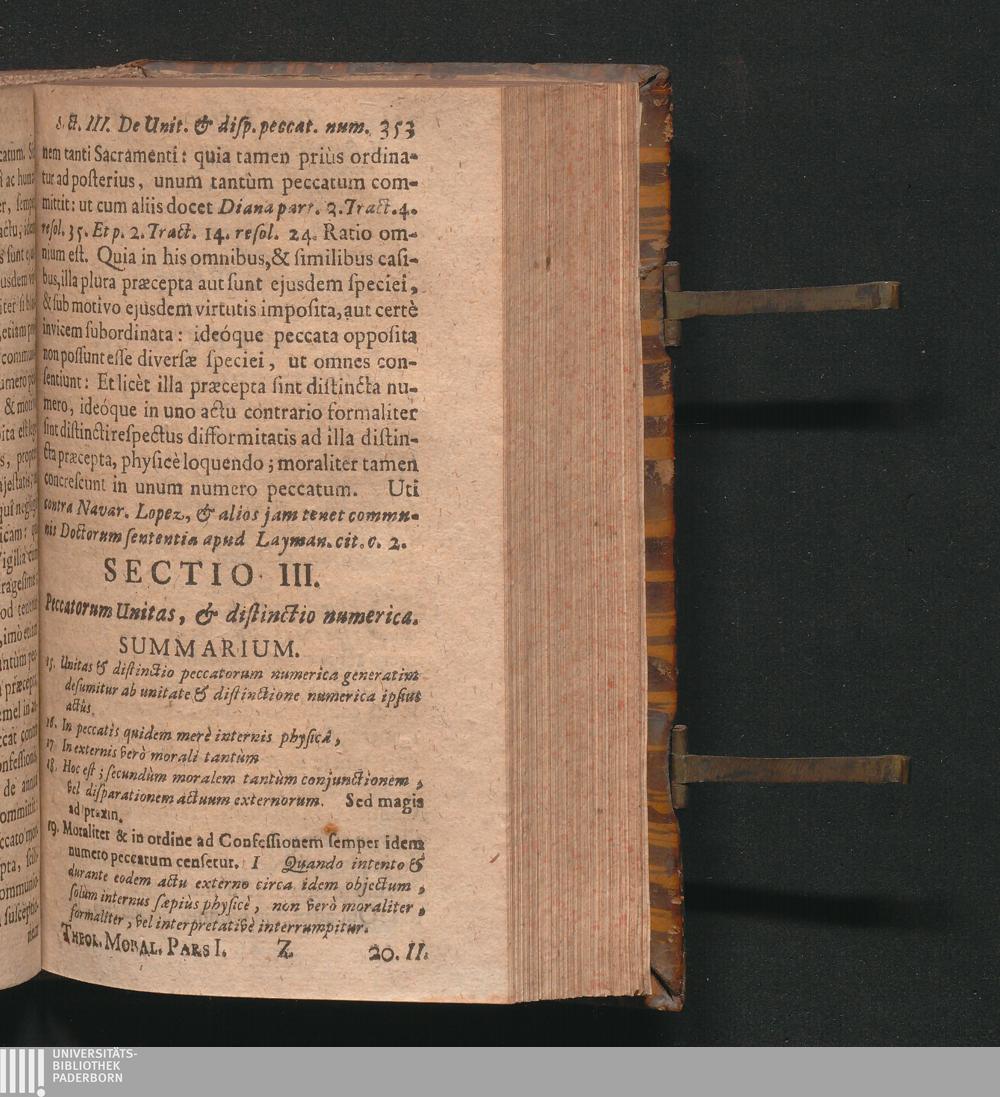 s. ct. III. De Unit. & disp. peccat. num. 353
nem tanti Sacramenti: quia tamen priùs ordina-
tur ad posterius, unum tantùm peccatum com-
mittit: ut cum aliis docet Diana part. 3. Tract. 4.
resol. 35. Et p. 2. Tract. 14. resol. 24. Ratio om-
nium est. Quia in his omnibus, & similibus casi-
bus, illa plura præcepta aut sunt ejusdem speciei,
& sub motivo ejusdem virtutis imposita, aut certè
invicem subordinata: ideóque peccata opposita
non possunt esse diversæ speciei, ut omnes con-
sentiunt: Et licèt illa præcepta sint distincta nu-
mero, ideóque in uno actu contrario formaliter
sint distincti respectus difformitatis ad illa distin-
cta præcepta, physicè loquendo; moraliter tamen
concrescunt in unum numero peccatum. Uti
contra Navar. Lopez, & alios jam tenet commu-
nis Doctorum sententia apud Layman. cit. c. 2.
SECTIO III.
Peccatorum Unitas, & distinctio numerica.
SUMMARIUM.
15. Unitas & distinctio peccatorum numerica generatim
desumitur ab unitate & distinctione numerica ipsius
actûs.
16. In peccatis quidem merè internis physicâ,
17 In externis verò morali tantùm
18. Hoc est; secundùm moralem tantùm conjunctionem,
vel disparationem actuum externorum. Sed magis
ad praxin.
19. Moraliter & in ordine ad Confessionem semper idem
numero peccatum censetur. I Quando intentio &
durante eodem actu externo circa idem objectum,
solùm internus sæpiùs physicè, non verò moraliter,
formaliter, vel interpretativè interrumpitur.
THEOL. MORAL. PARS I. Z. 20. II.
UNIVERSITÄTS-
BIBLIOTHEK
PADERBORN